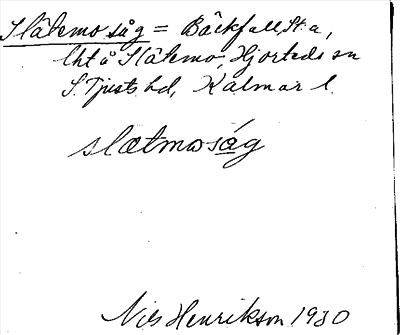 Slätemo såg = Bäckfall St. a,
lht å Slätemo, Hjorteds sn
S. Tjusts hd, Kalmar l.
slætmosåg
Nils Henrikson 1930